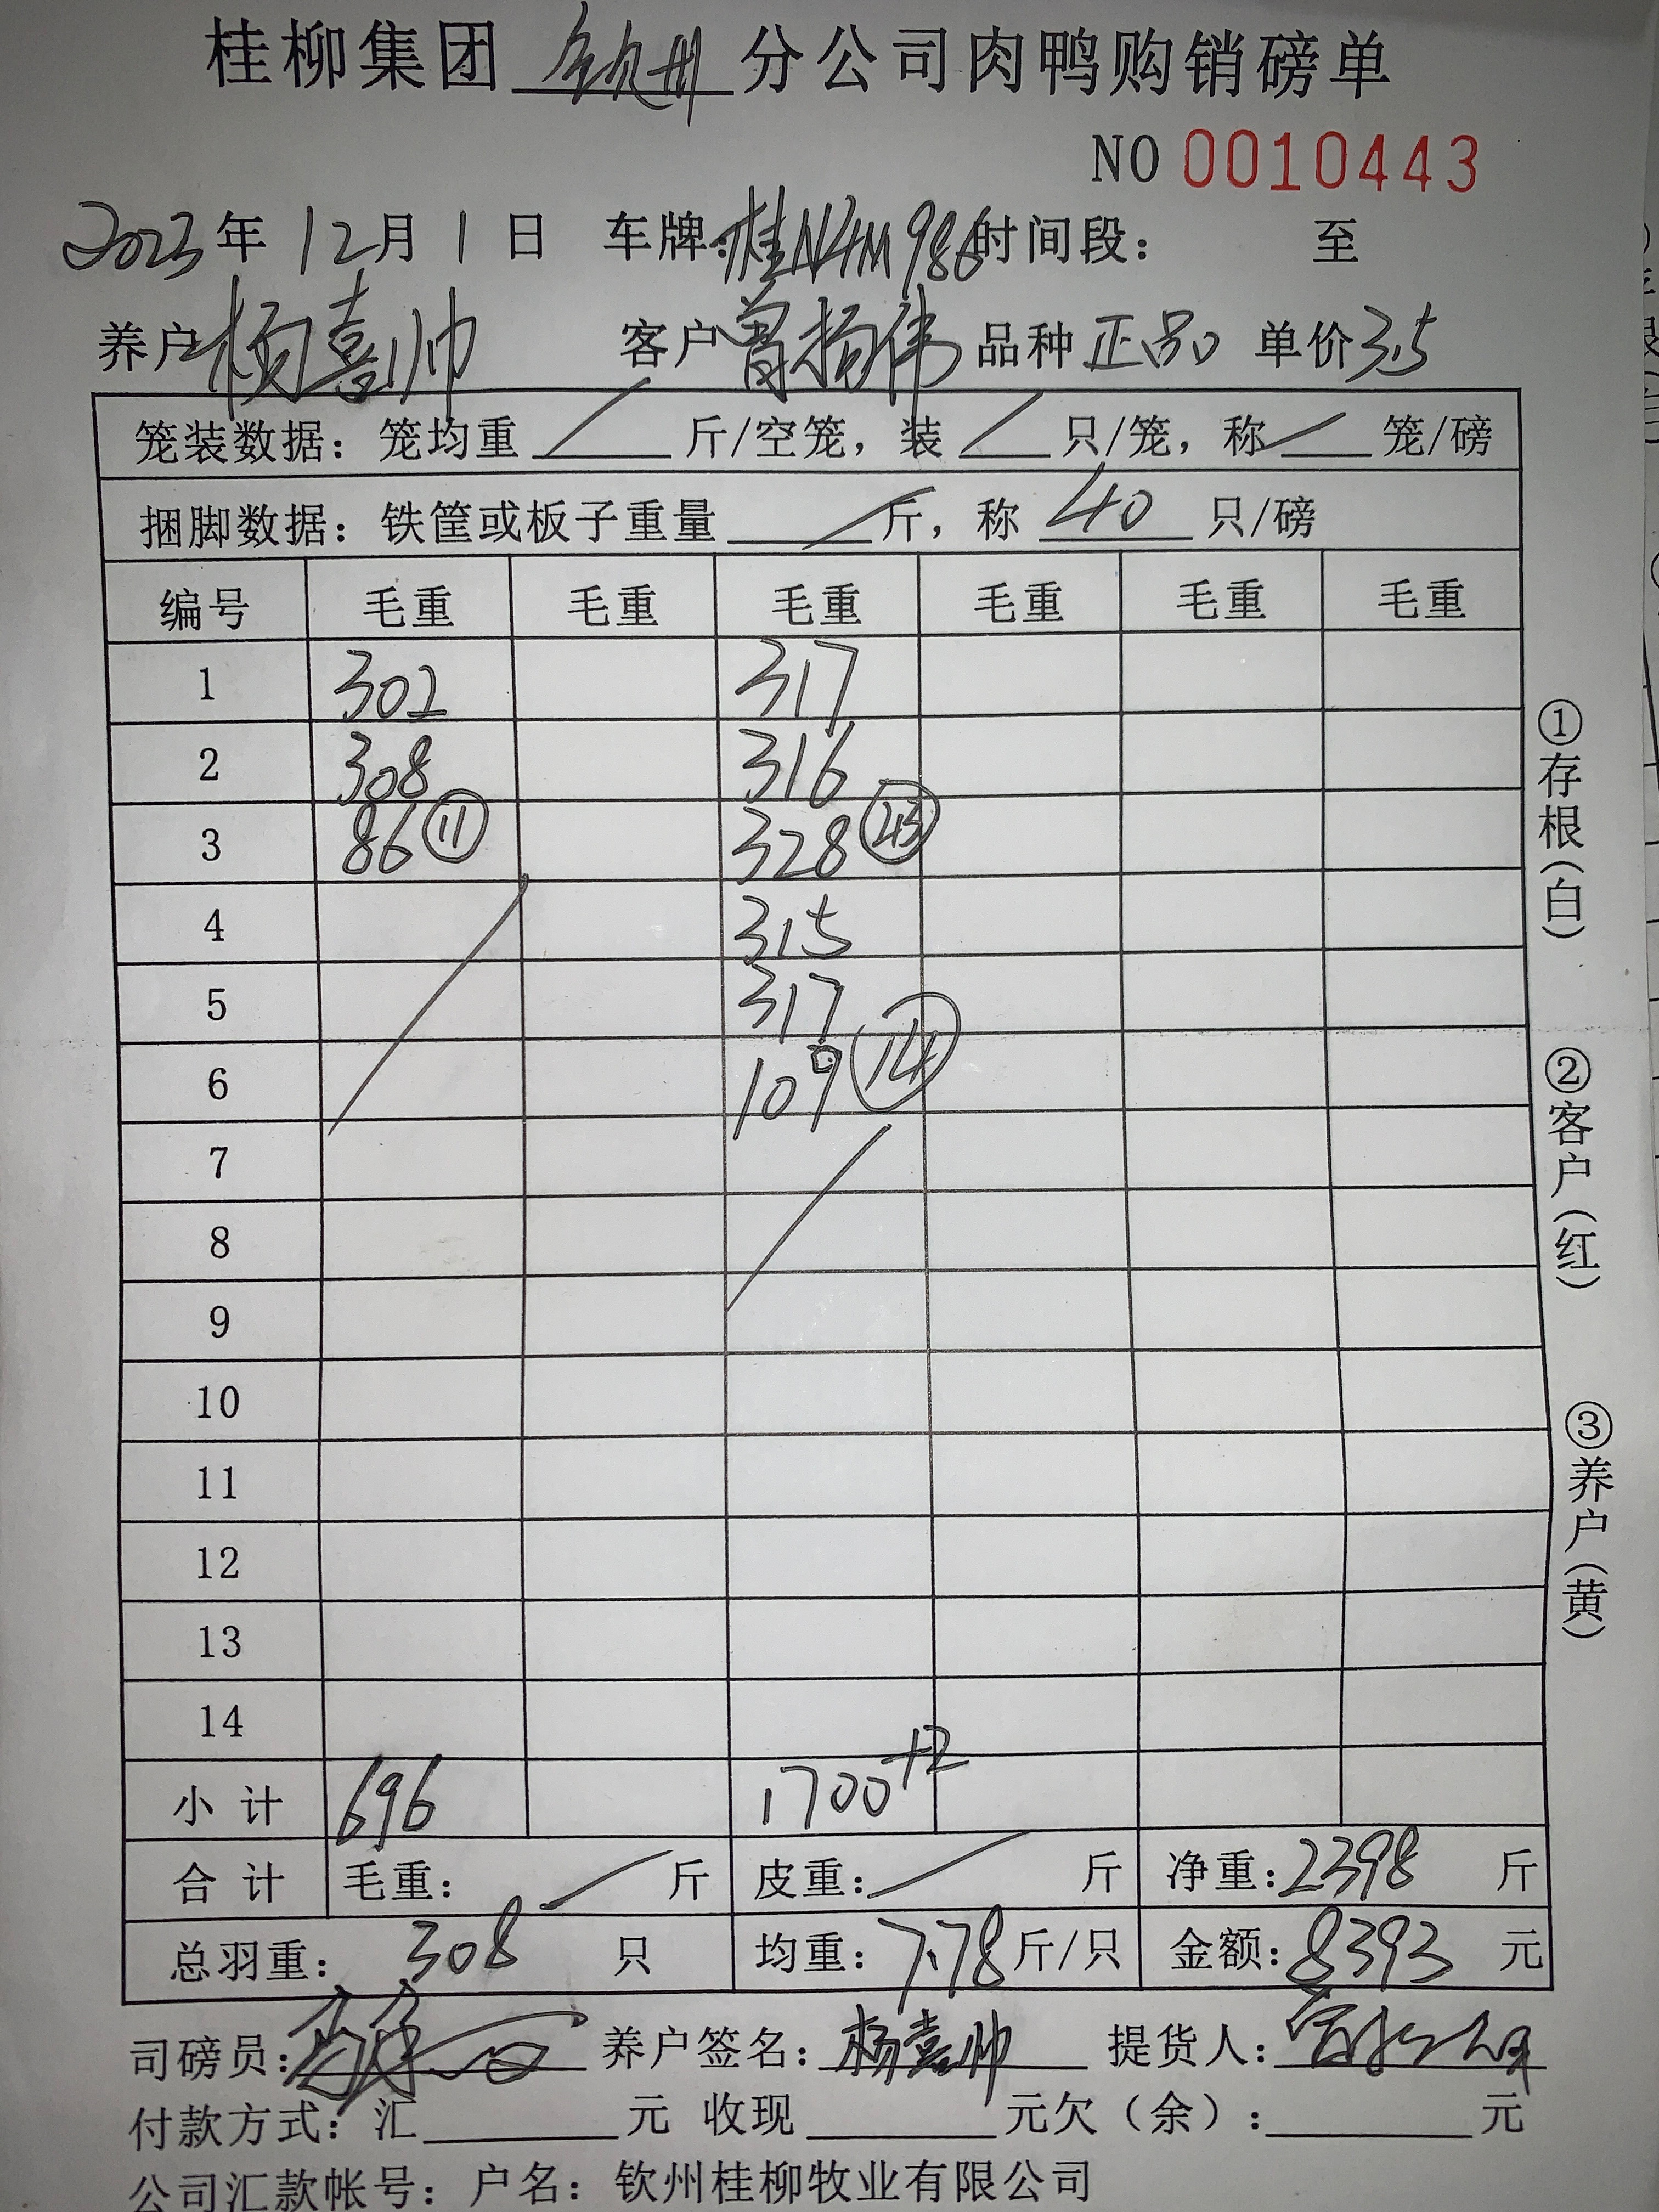 桂柳集团 钦州 分公司肉鸭购销磅单
NO 0010443
2023年 12月 1 日 车牌:桂N4M986 时间段: 至
养户 杨喜帅 客户 曾扬伟 品种 正品 单价 3.5
笼装数据: 笼均重 / 斤/空笼, 装 / 只/笼, 称 / 笼/磅
捆脚数据: 铁筐或板子重量 / 斤, 称 40 只/磅
编号 毛重 毛重 毛重 毛重 毛重 毛重
1 302 317
2 308 316
3 86 ⑪ 328 ㊸
4 315
5 317
6 109 ⑭
7
8
9
10
11
12
13
14
小 计 696 1700+2
合 计 毛重: / 斤 皮重: / 斤 净重: 2398 斤
总羽重: 308 只 均重: 7.78 斤/只 金额: 8393 元
司磅员: 养户签名: 杨喜帅 提货人:
付款方式: 汇 元 收现 元欠(余): 元
公司汇款帐号: 户名: 钦州桂柳牧业有限公司
①存根(白)
②客户(红)
③养户(黄)